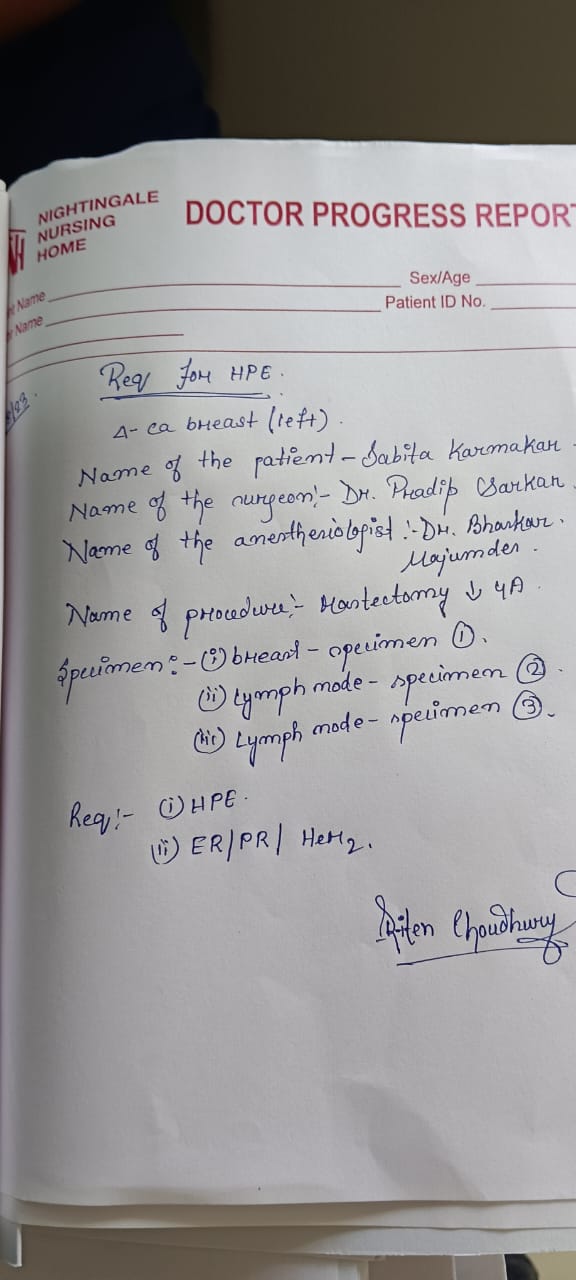 NIGHTINGALE
NURSING
HOME
DOCTOR PROGRESS REPORT
Sex/Age
Name
Patient ID No.
Name
Req For HPE.
Δ- ca breast (left).
Name of the patient - Sabita Karmakar
Name of the surgeon:- Dr. Pradip Sarkar.
Name of the anesthesiologist:- Dr. Bhaskar
Majumder.
Name of procedure:- Mastectomy ↓ GA.
Specimen:- (i) breast - specimen ①.
(ii) Lymph node - specimen ②.
(iii) Lymph node - specimen ③.
Req:- (i) HPE.
(ii) ER/PR/ Her2.
Choudhury